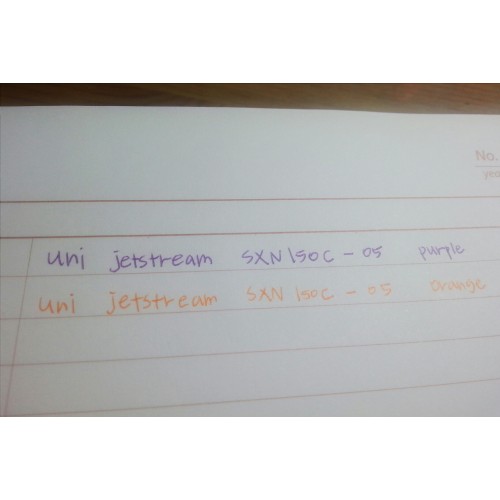 No.
yea
uni jetstream SXN150C-05 purple
uni jetstream SXN150C-05 orange